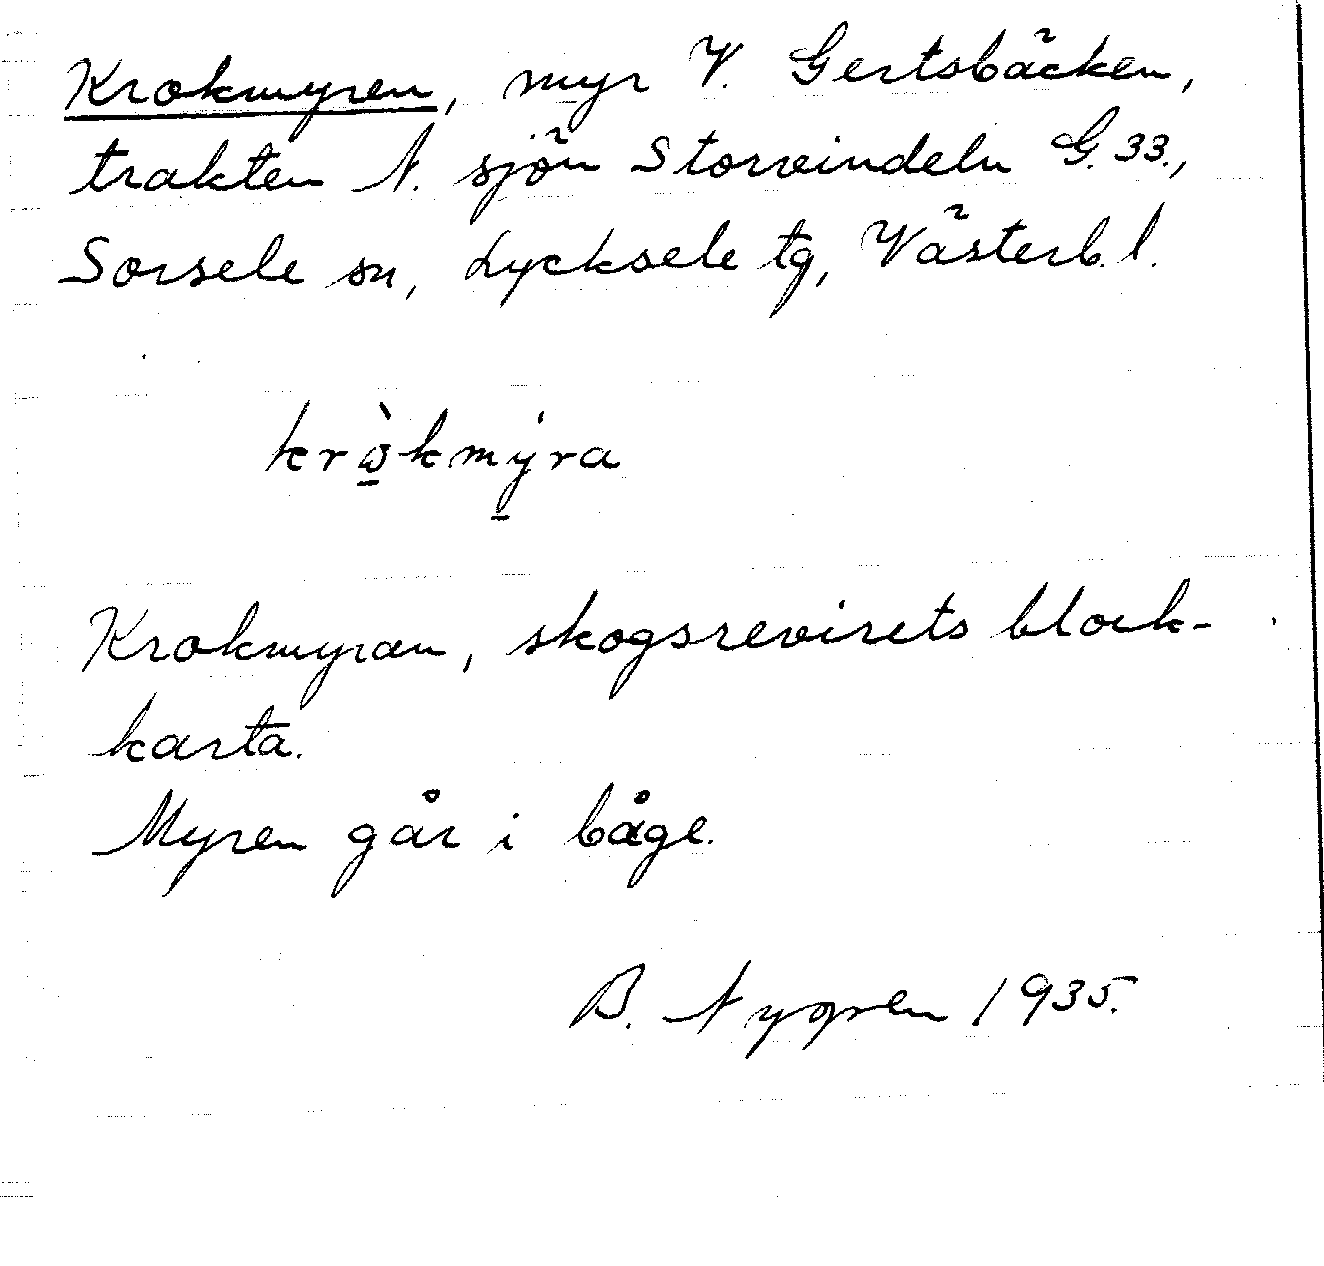 Krokmyren, myr V. Gertsbäcken,
trakten N. sjön Storvindeln G. 33.,
Sorsele sn, Lycksele tg, Västerb. l.
krὼ̲kmý̲ra
Krokmyran, skogsrevirets block-
karta.
Myren går i båge.
B. Nygren 1935.